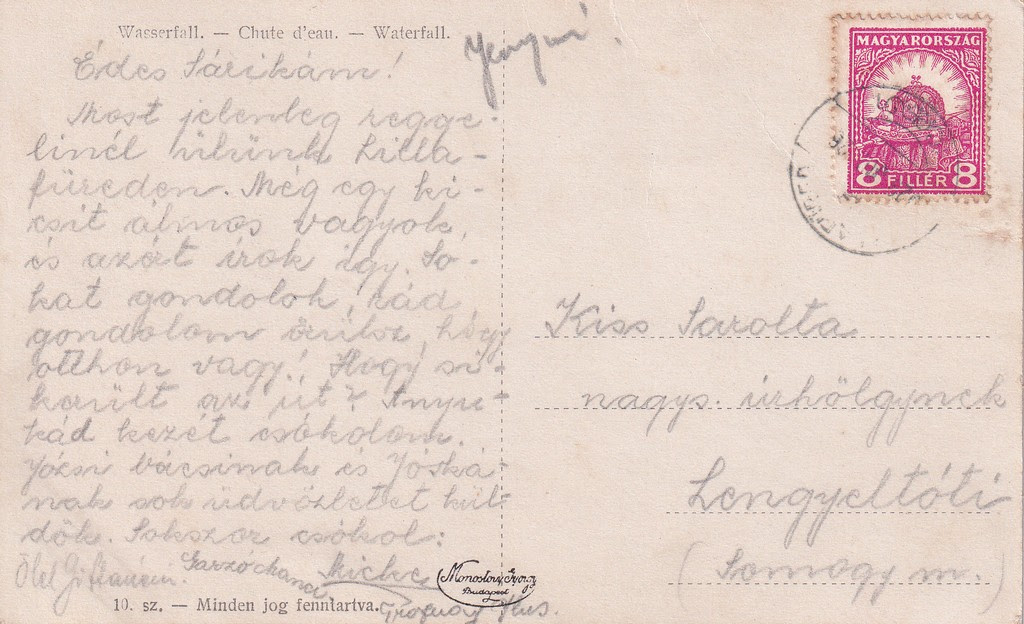 Wasserfall. — Chute d'eau. — Waterfall.
Édes Sárikám!
Most jelenleg regge-
linél ülünk Lilla-
füreden. Még egy ki-
csit álmos vagyok,
és azért írok így. So-
kat gondolok rád,
gondolom örülsz, hogy
otthon vagy! Hogy si-
került az út? Anyu-
kád kezét csókolom.
Józsi bácsinak és Jóská-
nak sok üdvözletet kül-
dök. Sokszor csókol:
10. sz. — Minden jog fenntartva.
Monostory György
Budapest
MAGYARORSZÁG
8 FILLÉR 8
Kiss Sarolta
nagys. úrhölgynek
Lengyeltóti
(Somogy m.)